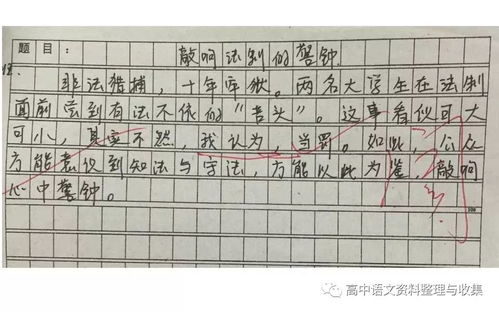 题目:
敲响法制的警钟
非法猎捕，十年牢狱。两名大学生在法制
面前尝到有法不依的“苦头”。这事看似可大
可小，其实不然，我认为，当罚。如此，公众
方能意识到知法与守法，方能以此为鉴，敲响
心中警钟。
高中语文资料整理与收集